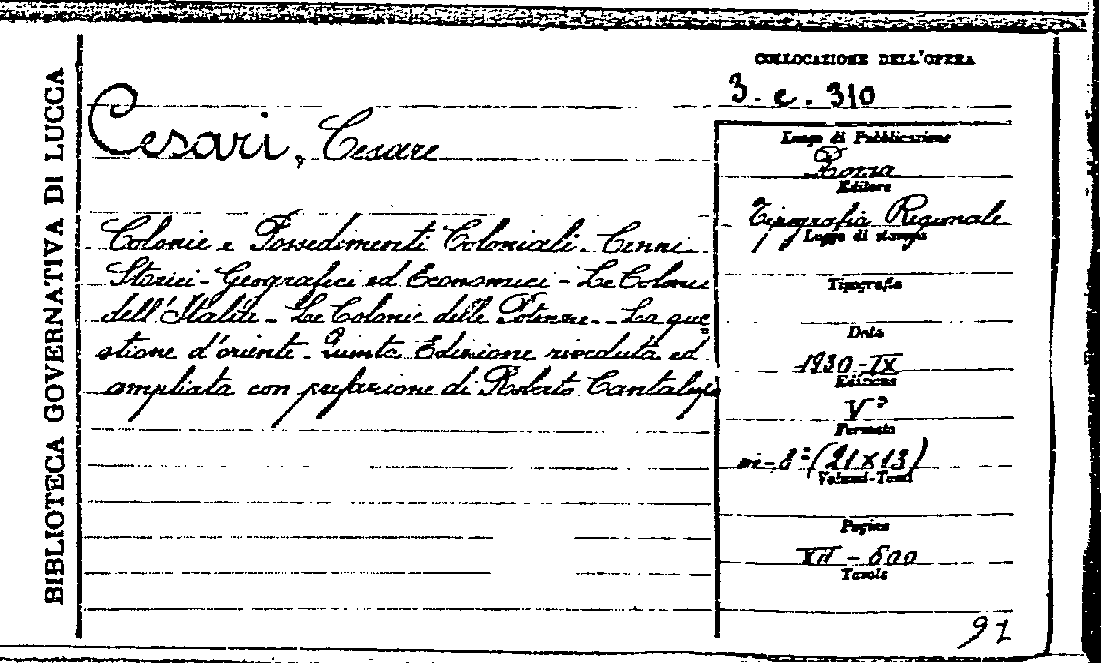 BIBLIOTECA GOVERNATIVA DI LUCCA
COLLOCAZIONE DELL'OPERA
3. e. 310
Cesari, Cesare
Colonie e Possedimenti Coloniali. Cenni
Storici - Geografici ed Economici - Le Colonie
dell'Italia - Le Colonie delle Potenze - La que
stione d'oriente. Quinta Edizione riveduta ed
ampliata con prefazione di Roberto Cantalupo
Luogo di Pubblicazione
Roma
Editore
Tipografia Regionale
Luogo di stampa
Tipografia
Data
1930-IX
Edizione
Vª
Formato
in-8° (21x13)
Volumi-Tomi
Pagine
XII - 600
Tavole
91